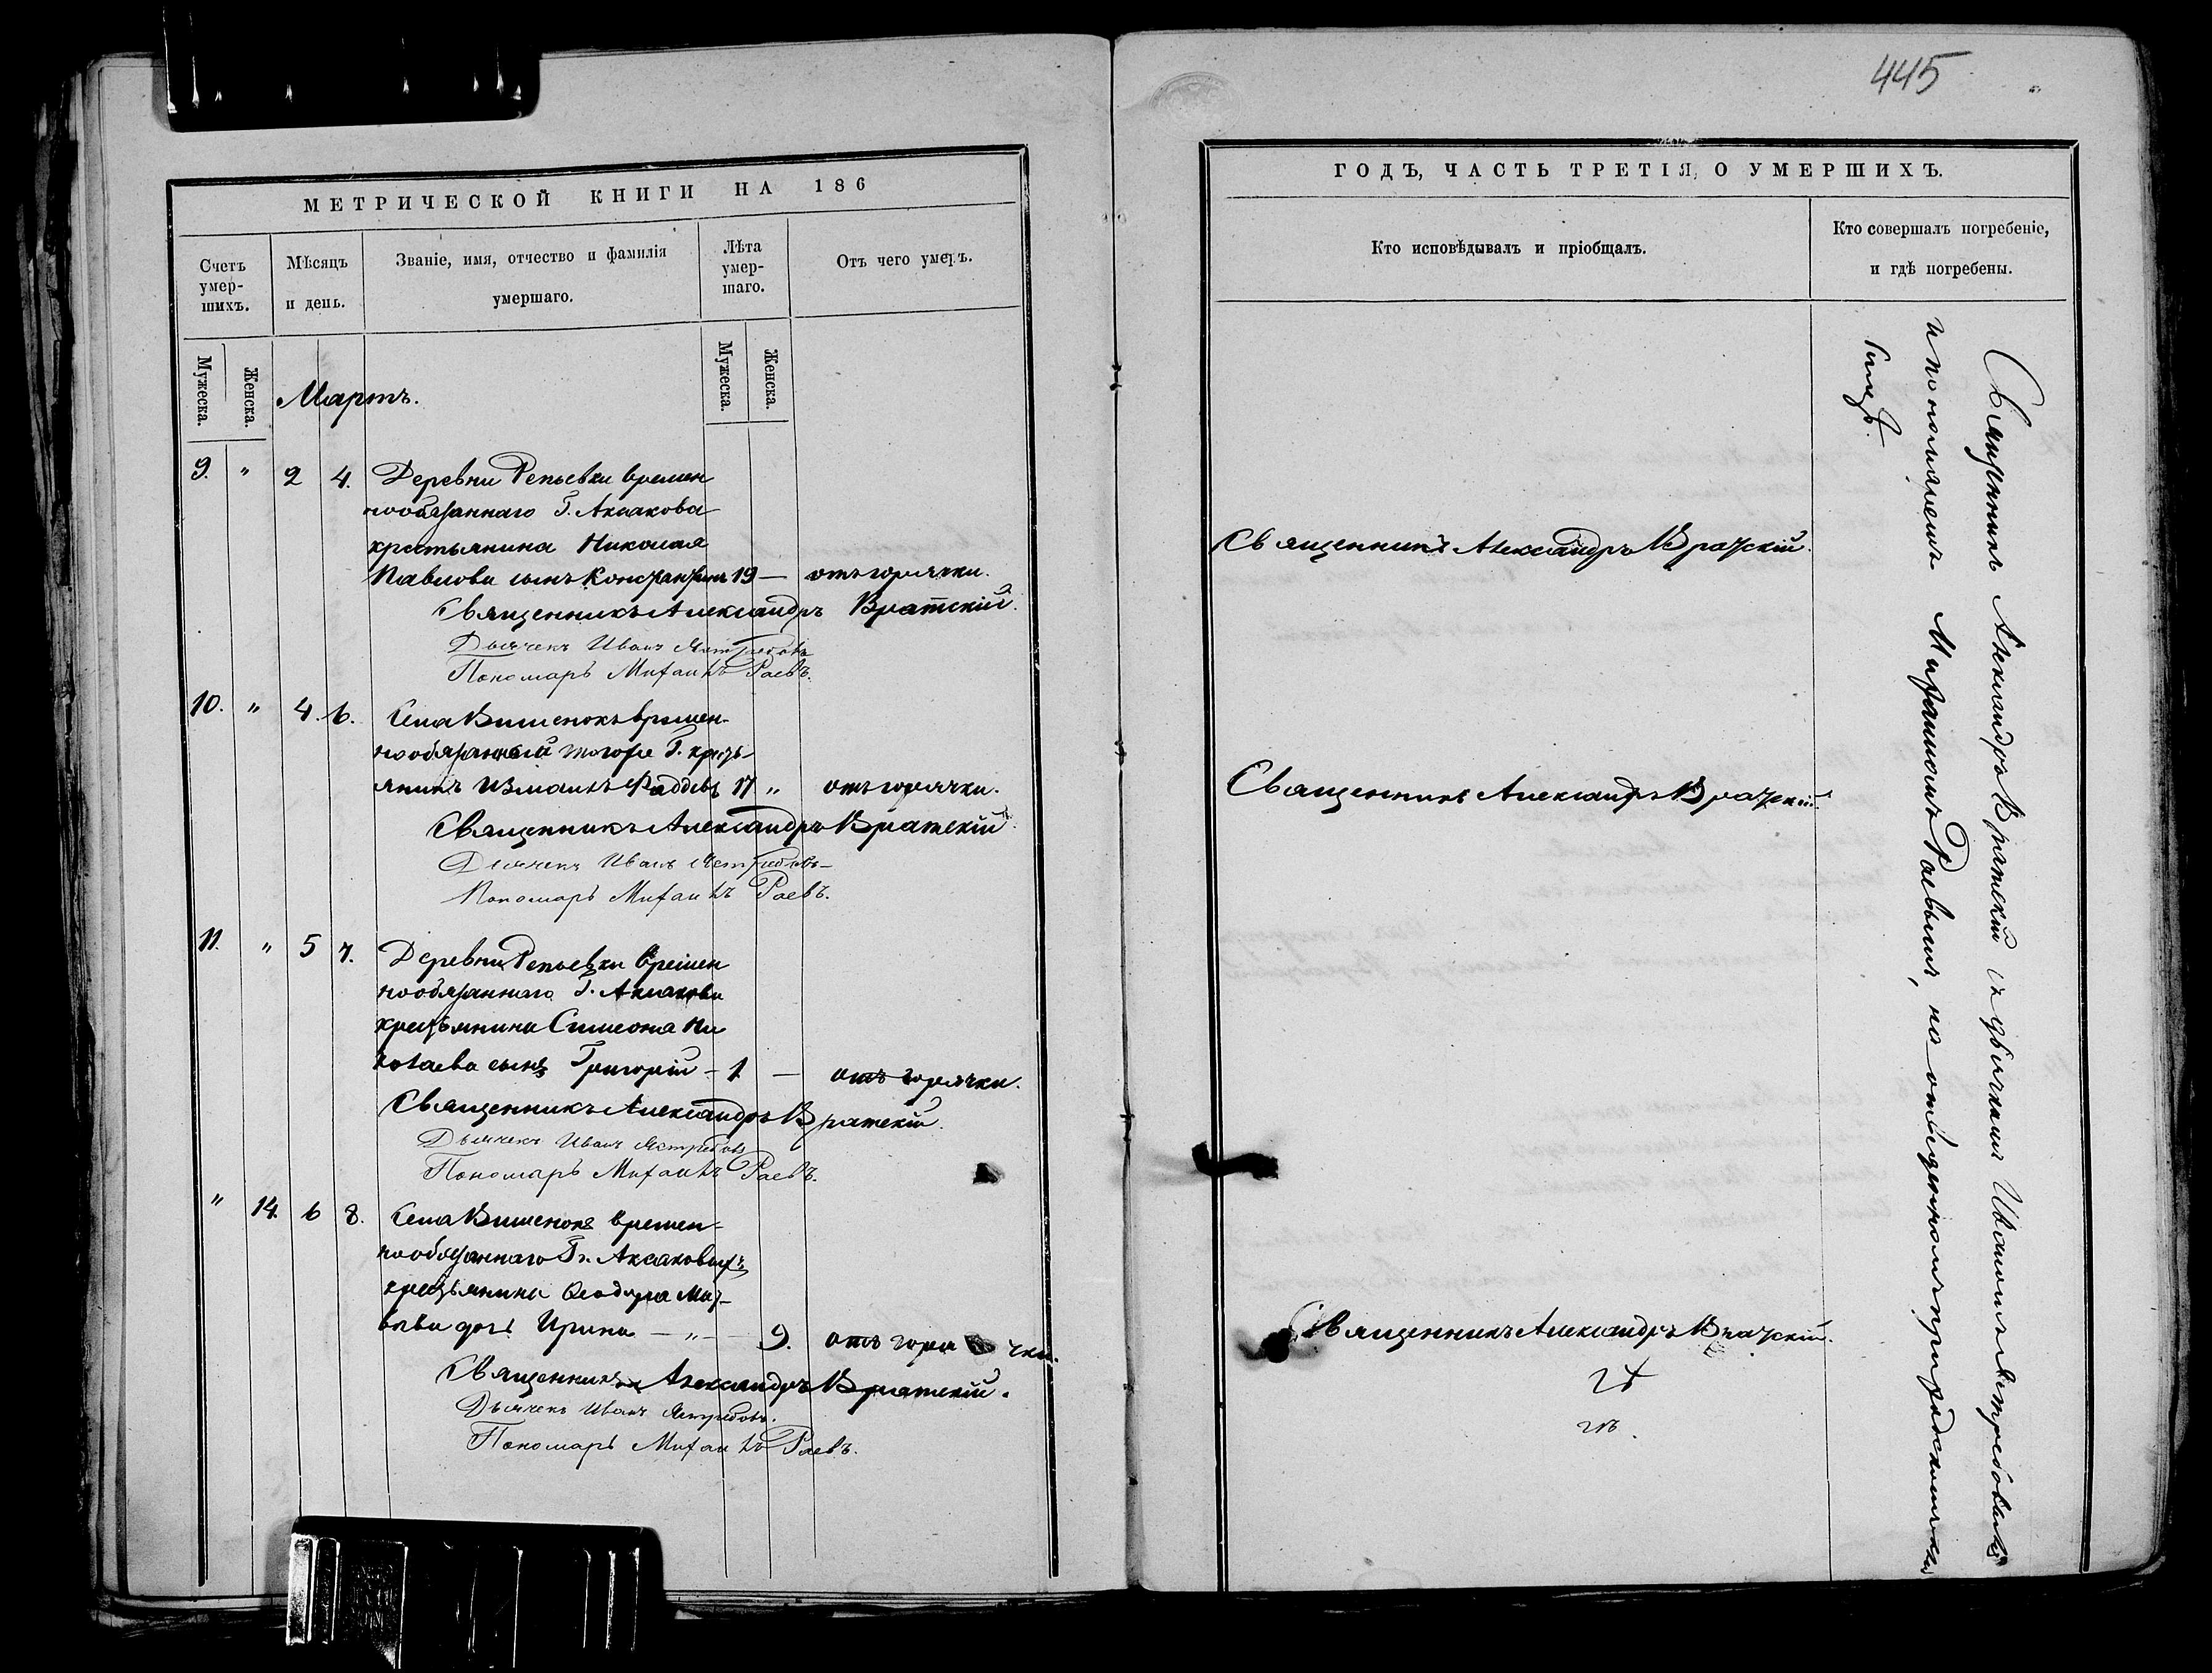 445
МЕТРИЧЕСКОЙ КНИГИ НА 186
Счетъ умер-шихъ.
Мѣсяцъ и день.
Званіе, имя, отчество и фамилія умершаго.
Лѣта умер-шаго.
Отъ чего умеръ.
Мужеска.
Женска.
Мужеска.
Женска.
Мартъ.
9. " 2 4. Деревни Репьевки времен
нообязаннаго Г. Аксакова
крестьянина Николая
Павлова сынъ Константинъ 19 — отъ горячки.
Священникъ Александръ Вратскій.
Дьячекъ Иванъ Ястребовъ
Пономарь Михаилъ Раевъ.
10. " 4. 6. Села Вишенокъ времен-
нообязанный тогоже Г. кресть-
янинъ Измаилъ Фаддѣевъ 17 " отъ горячки.
Священникъ Александръ Вратскій.
Дьячекъ Иванъ Ястребовъ
Пономарь Михаилъ Раевъ.
11. " 5 7. Деревни Репьевки времен
нообязаннаго Г. Аксакова
крестьянина Симеона Ни
колаева сынъ Григорій - 1 — отъ горячки.
Священникъ Александръ Вратскій.
Дьячекъ Иванъ Ястребовъ
Пономарь Михаилъ Раевъ.
" 14. 6 8. Села Вишенокъ времен-
нообязаннаго Гг. Аксаковыхъ
крестьянина Ѳеодора Мат-
вѣева дочь Ирина — " — 9. отъ горячки.
Священникъ Александръ Вратскій.
Дьячекъ Иванъ Ястребовъ.
Пономарь Михаилъ Раевъ.
ГОДЪ, ЧАСТЬ ТРЕТІЯ, О УМЕРШИХЪ.
Кто исповѣдывалъ и пріобщалъ.
Кто совершалъ погребеніе, и гдѣ погребены.
Священникъ Александръ Вратскій.
Священникъ Александръ Вратскій.
Священникъ Александръ Вратскій.
Священникъ Александръ Вратскій съ дьячкомъ Иваномъ Ястребовымъ
и пономаремъ Михаиломъ Раевымъ, на отведенномъ приходскомъ клад
бищѣ.